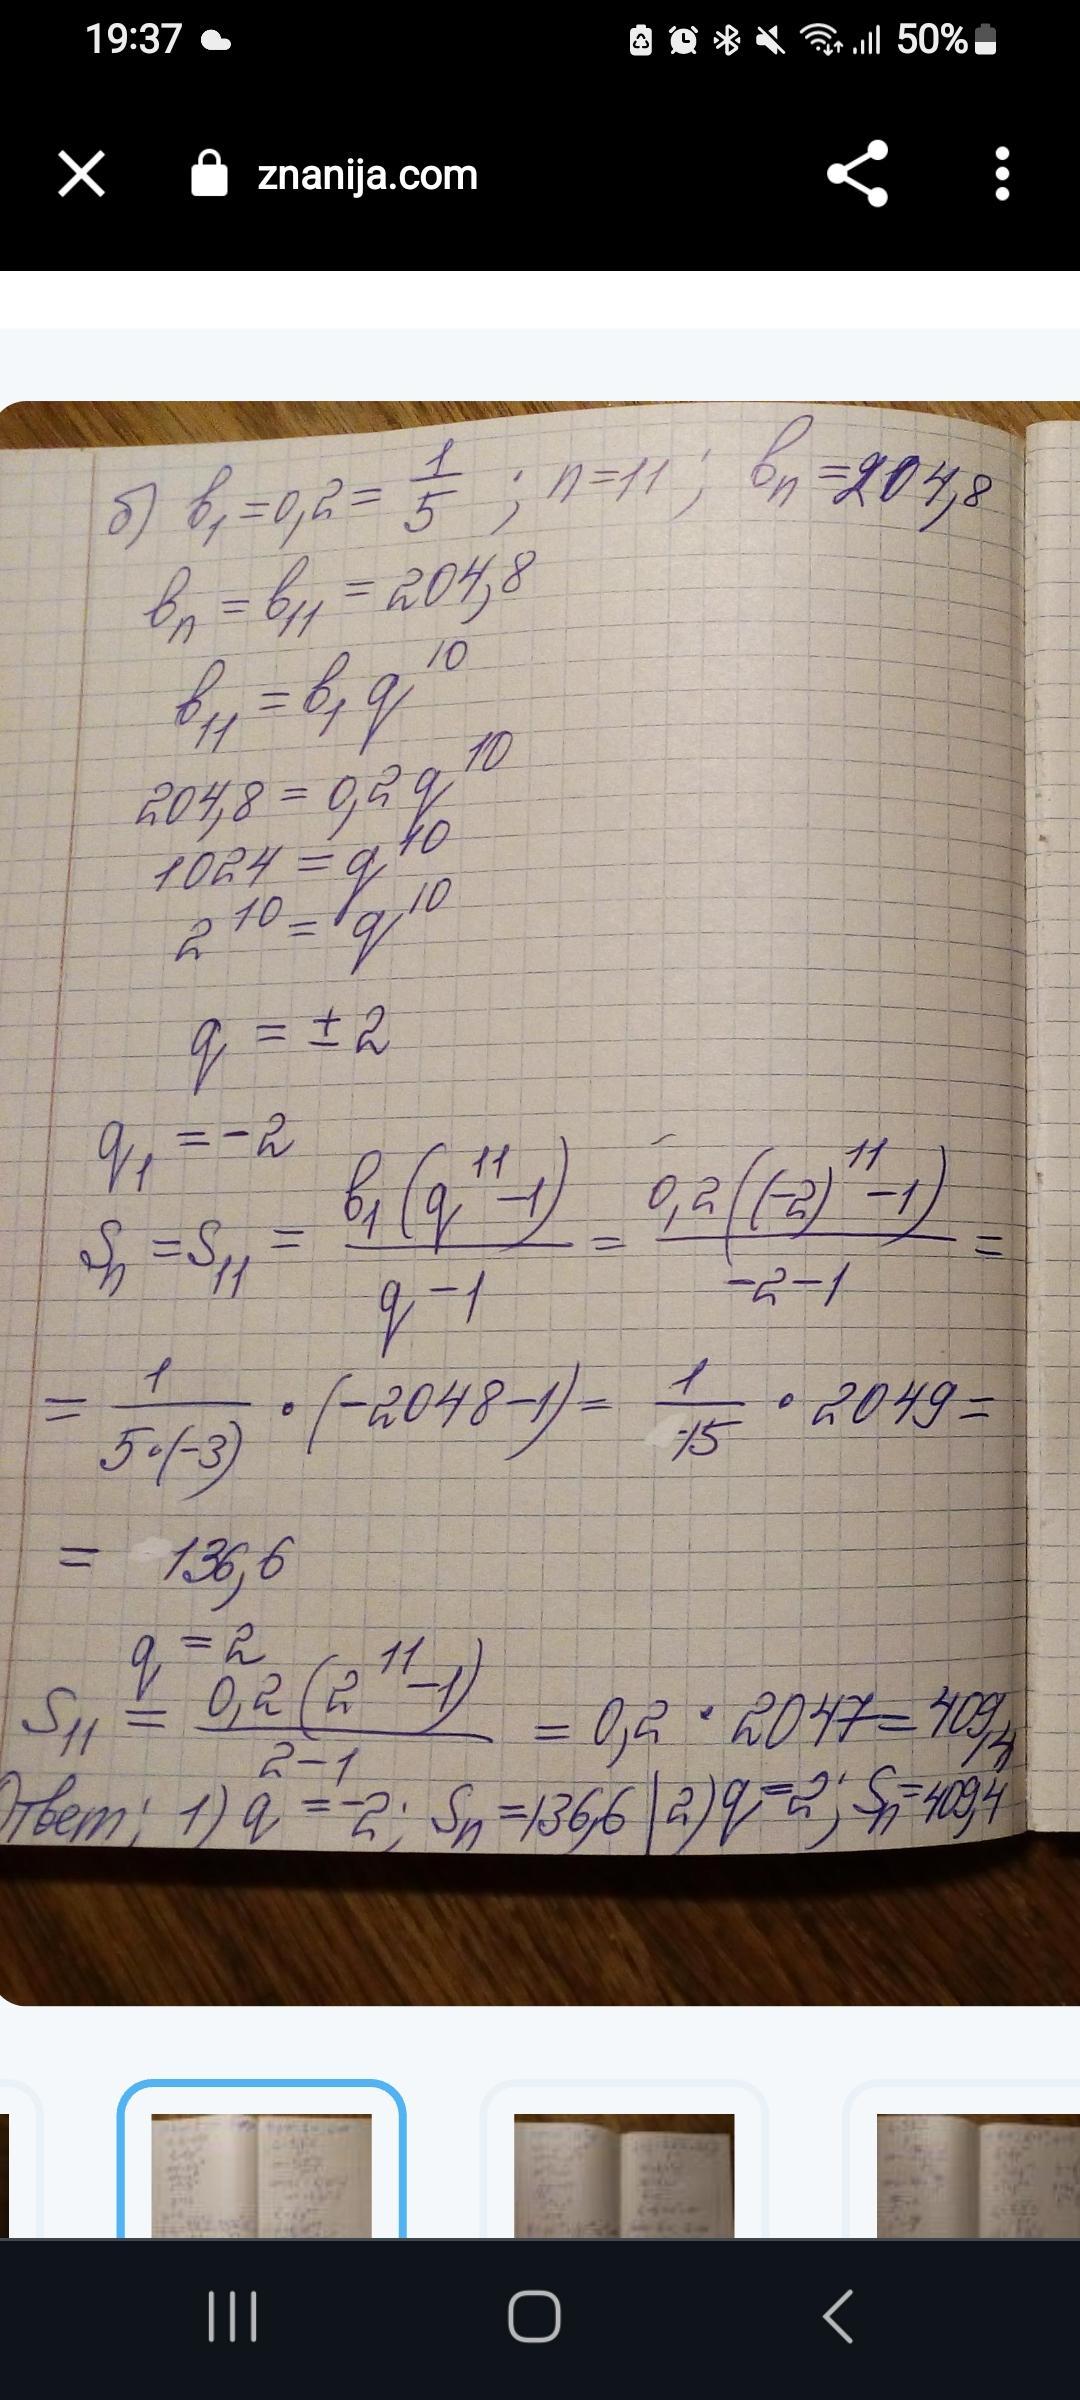 19:37 50%
znanija.com
б) b₁=0,2= 1/5 ; n=11; bₙ=204,8
bₙ = b₁₁ = 204,8
b₁₁ = b₁ q¹⁰
204,8 = 0,2 q¹⁰
1024 = q¹⁰
2¹⁰ = q¹⁰
q = ±2
q₁ = -2
Sₙ = S₁₁ = b₁(q¹¹-1)/(q-1) = 0,2((-2)¹¹-1)/(-2-1) =
= 1/(5·(-3)) · (-2048-1) = 1/15 · 2049 =
= 136,6
q = 2
S₁₁ = 0,2(2¹¹-1)/(2-1) = 0,2 · 2047 = 409,4
Ответ; 1) q = -2; Sₙ =136,6 | 2) q=2; Sₙ=409,4